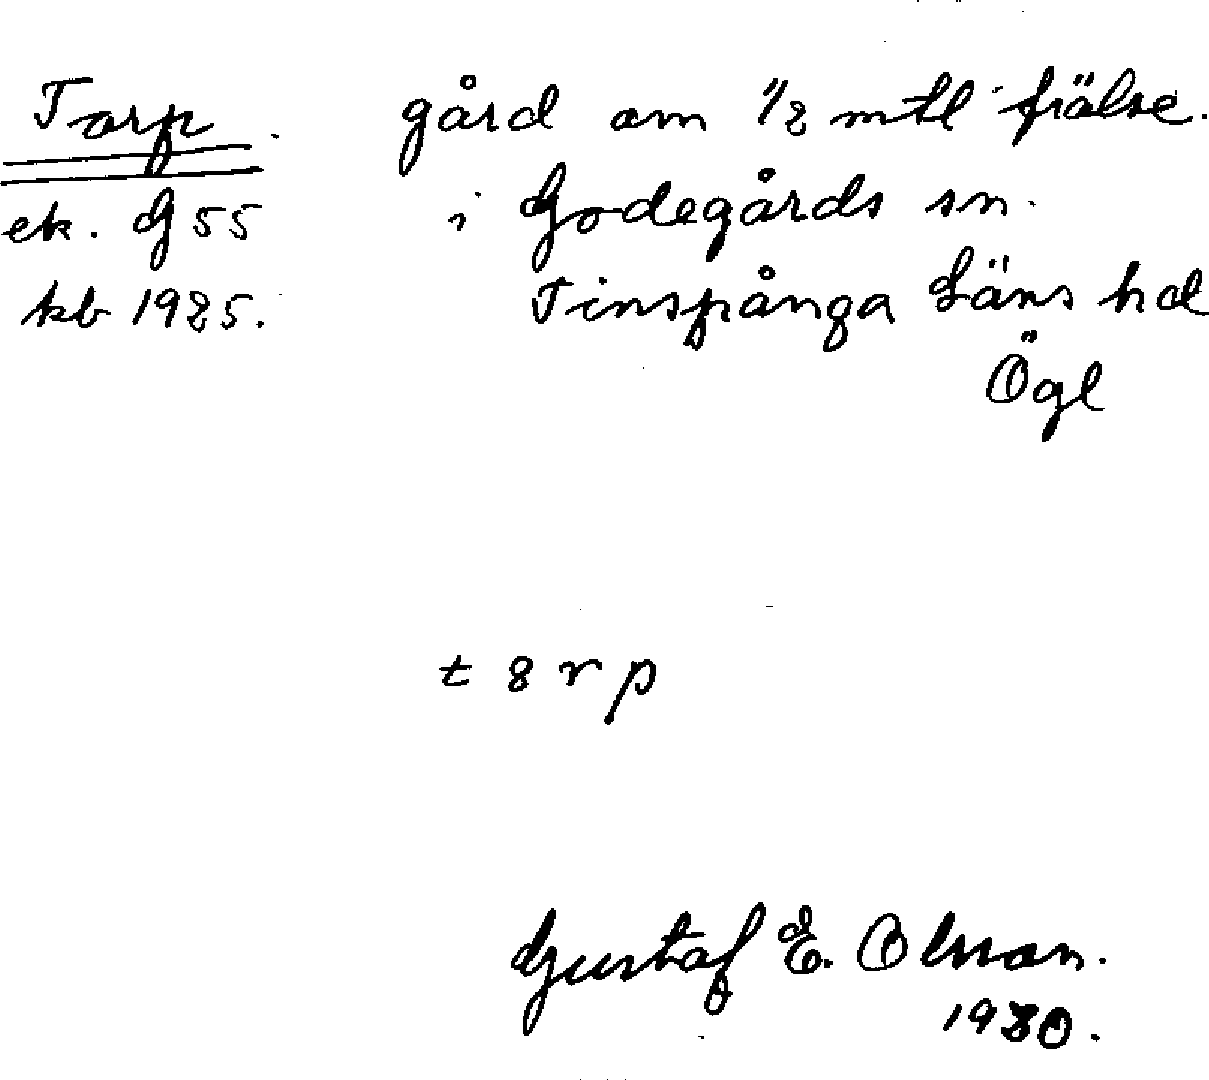 Torp. gård om 1/2 mtl frälse.
ek. G 55 i Godegårds sn.
kb 1925. Finspånga Läns hd
Ögl
t 8 r p
Gustaf E. Olsson.
1930.